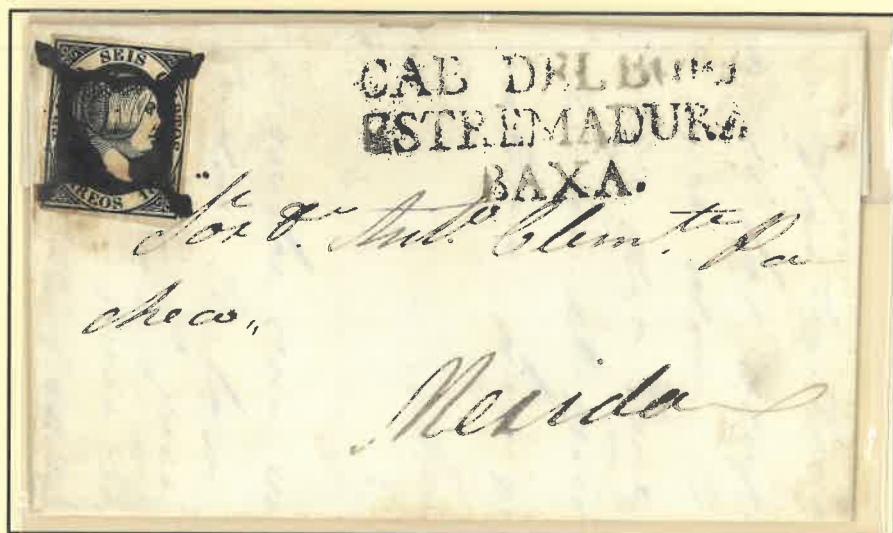 SEIS
REOS 1
CAB DEL BUEY
ESTREMADURA
BAXA.
Sor Dn Anto Clemte Pa
checo,,
Merida